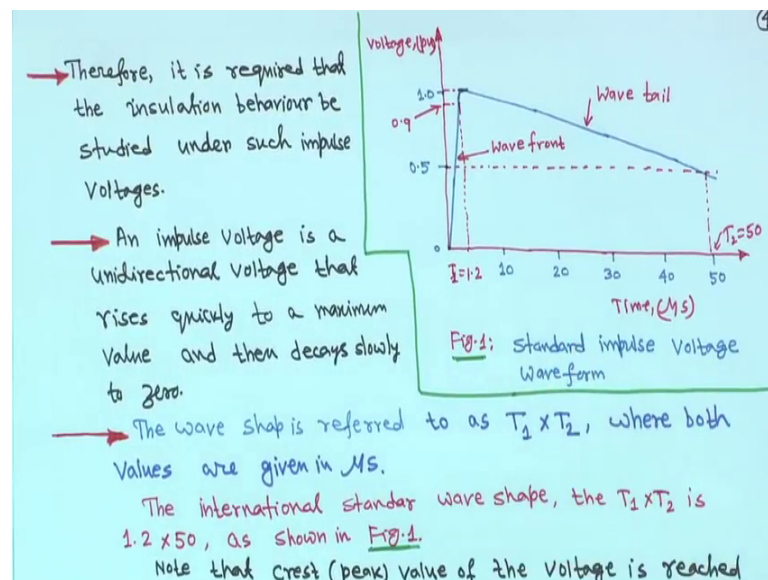 Therefore, it is required that
the insulation behaviour be
studied under such impulse
Voltages.
An impulse voltage is a
unidirectional voltage that
rises quickly to a maximum
value and then decays slowly
to zero.
Voltage,(pu)
1.0
0.9
0.5
0
Wave tail
Wave front
T₂=50
T₁=1.2
10
20
30
40
50
Time,(μs)
Fig.1: Standard impulse voltage
Waveform
The wave shap is referred to as T₁ x T₂, where both
values are given in μs.
The international standar wave shape, the T₁ x T₂ is
1.2 x 50, as shown in Fig.1.
Note that crest (peak) value of the voltage is reached